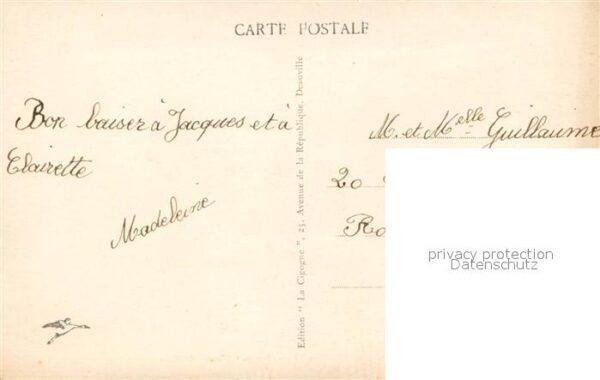 CARTE POSTALE
Bon baiser à Jacques et à
Clairette
Madeleine
Edition " La Cigogne ", 25, Avenue de la République, Deauville
M. et Melle Guillaume
20
Ro
privacy protection
Datenschutz